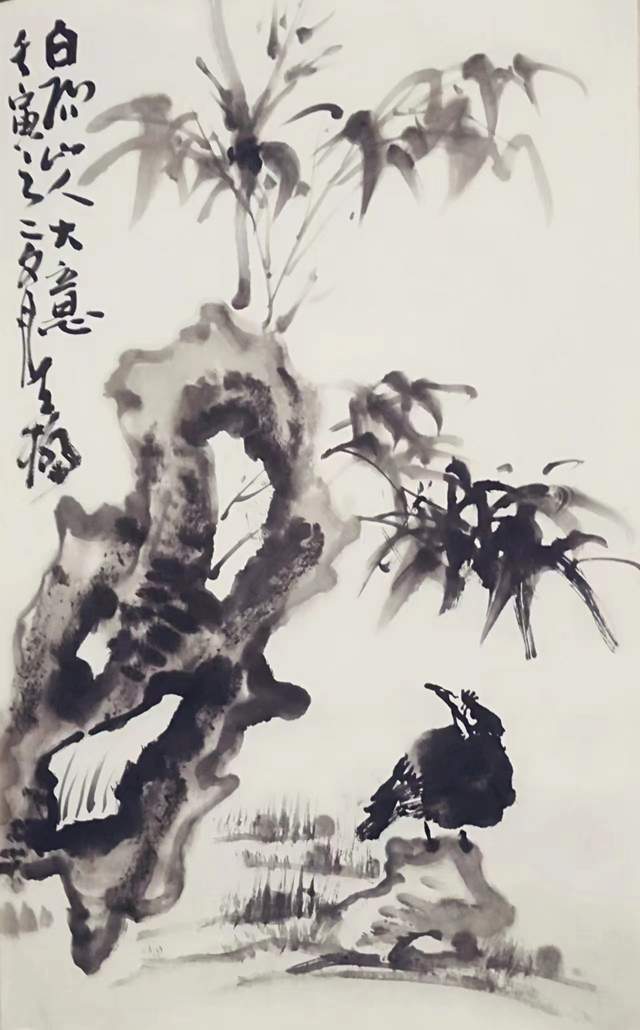 白山人大意
壬寅之二月